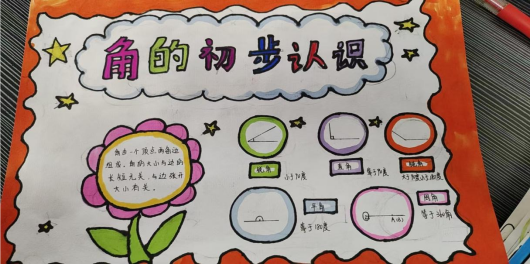 角的初步认识
由一个顶点两条边
组成，角的大小与边的
长短无关，与边张开
大小有关。
锐角
直角
钝角
小于90度
等于90度
大于90度小于180度
平角
周角
等于180度
等于360角